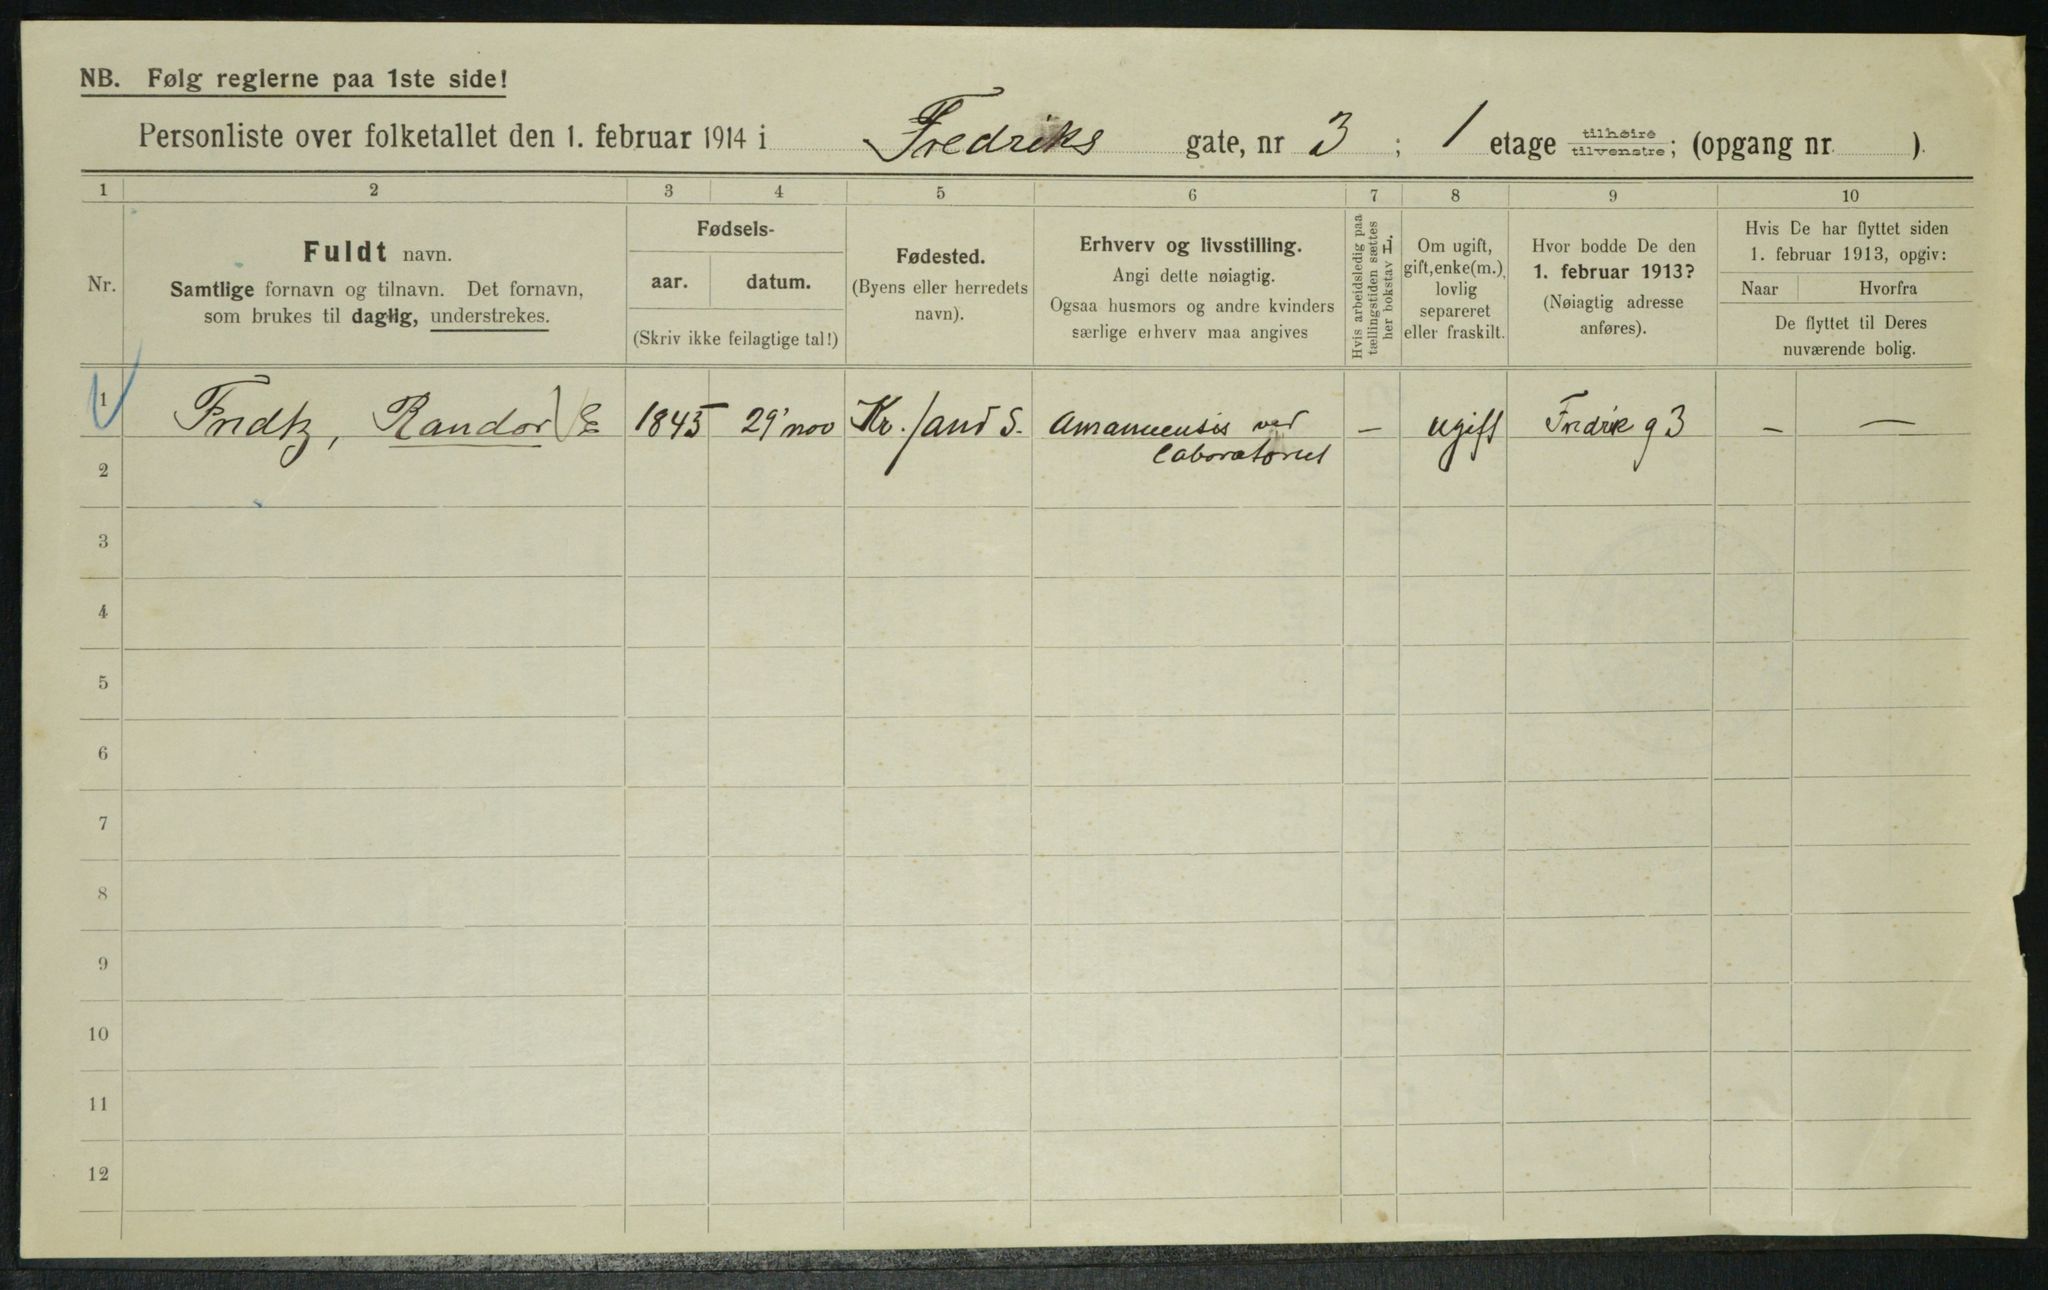 NB. Følg reglerne paa 1ste side!
Personliste over folketallet den 1. februar 1914 i Fredriks gate, nr 3 ; 1 etage tilhøire tilvenstre; (opgang nr ).
1 2 3 4 5 6 7 8 9 10
Nr.
Fuldt navn.
Samtlige fornavn og tilnavn. Det fornavn,
som brukes til daglig, understrekes.
Fødsels-
aar. datum.
(Skriv ikke feilagtige tal!)
Fødested.
(Byens eller herredets
navn).
Erhverv og livsstilling.
Angi dette nøiagtig.
Ogsaa husmors og andre kvinders
særlige erhverv maa angives
Hvis arbeidsledig paa
tællingstiden sættes
her bokstav L.
Om ugift,
gift, enke(m.),
lovlig
separeret
eller fraskilt.
Hvor bodde De den
1. februar 1913?
(Nøiagtig adresse
anføres).
Hvis De har flyttet siden
1. februar 1913, opgiv:
Naar Hvorfra
De flyttet til Deres
nuværende bolig.
1 Fridtz, Randor E 1845 29' nov Kr./and S. Amanuensis ved — ugift Fredrik g 3 — —
laboratoriet
2
3
4
5
6
7
8
9
10
11
12